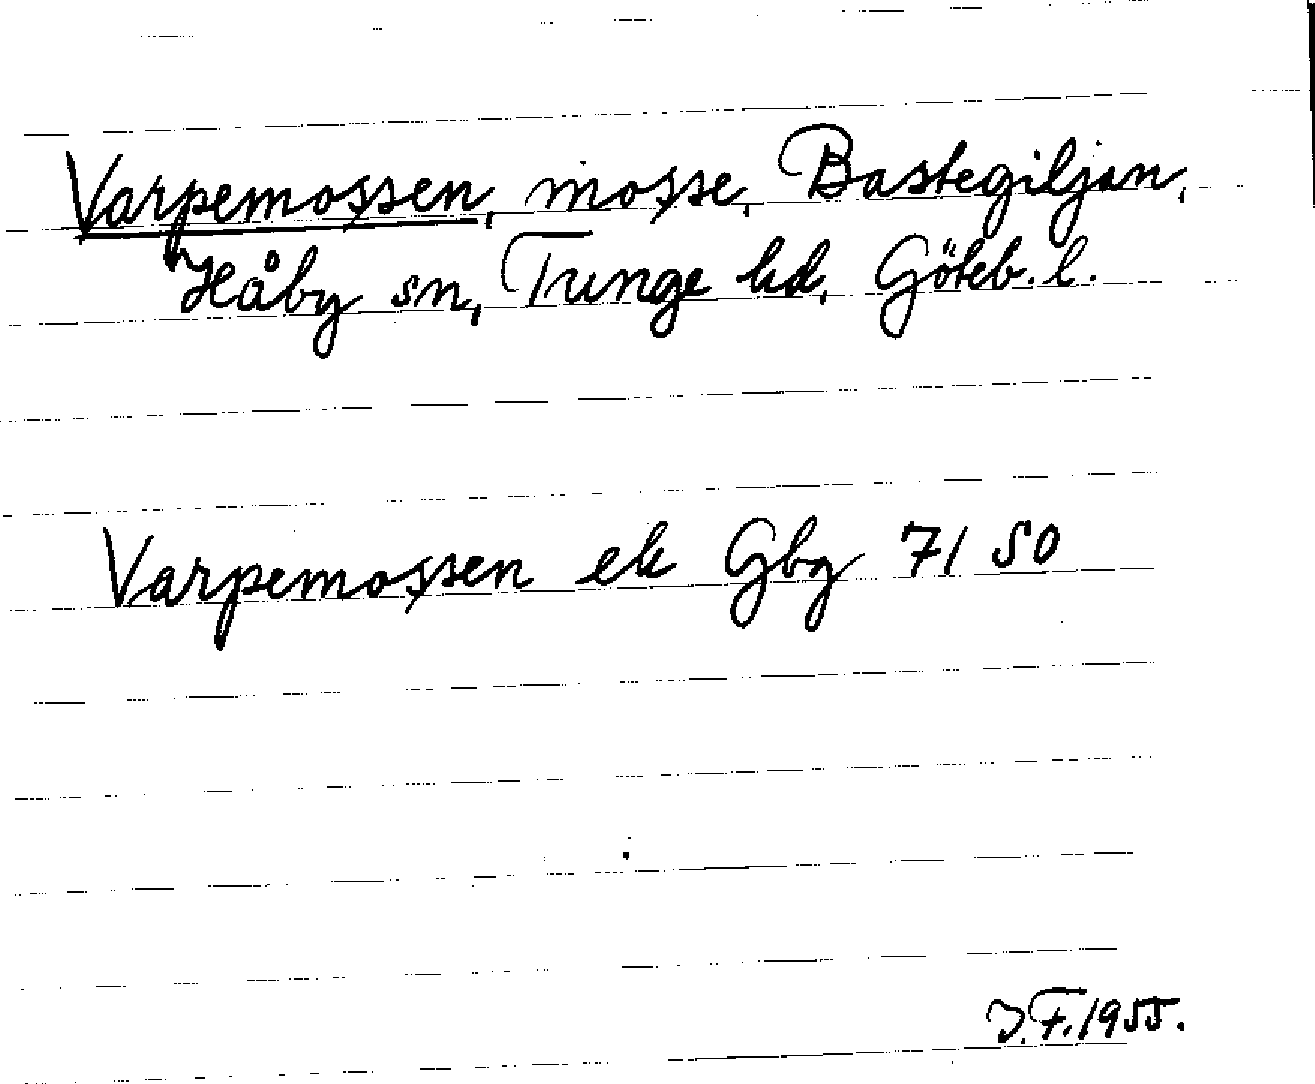 Varpemossen, mosse, Bastegiljan,
Håby sn, Tunge hd, Göteb. l.
Varpemossen ek Gbg 71 50
J.F. 1955.